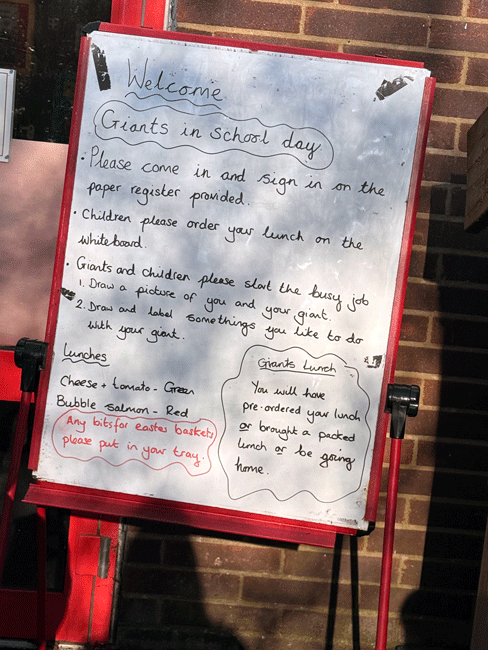 Welcome
Giants in school day
• Please come in and sign in on the
paper register provided.
• Children please order your lunch on the
whiteboard.
• Giants and children please start the busy job
1. Draw a picture of you and your giant.
2. Draw and label somethings you like to do
with your giant.
Lunches
Cheese + tomato - Green
Bubble salmon - Red
Any bits for easter baskets
please put in your tray.
Giants Lunch
You will have
pre-ordered your lunch
or brought a packed
lunch or be going
home.